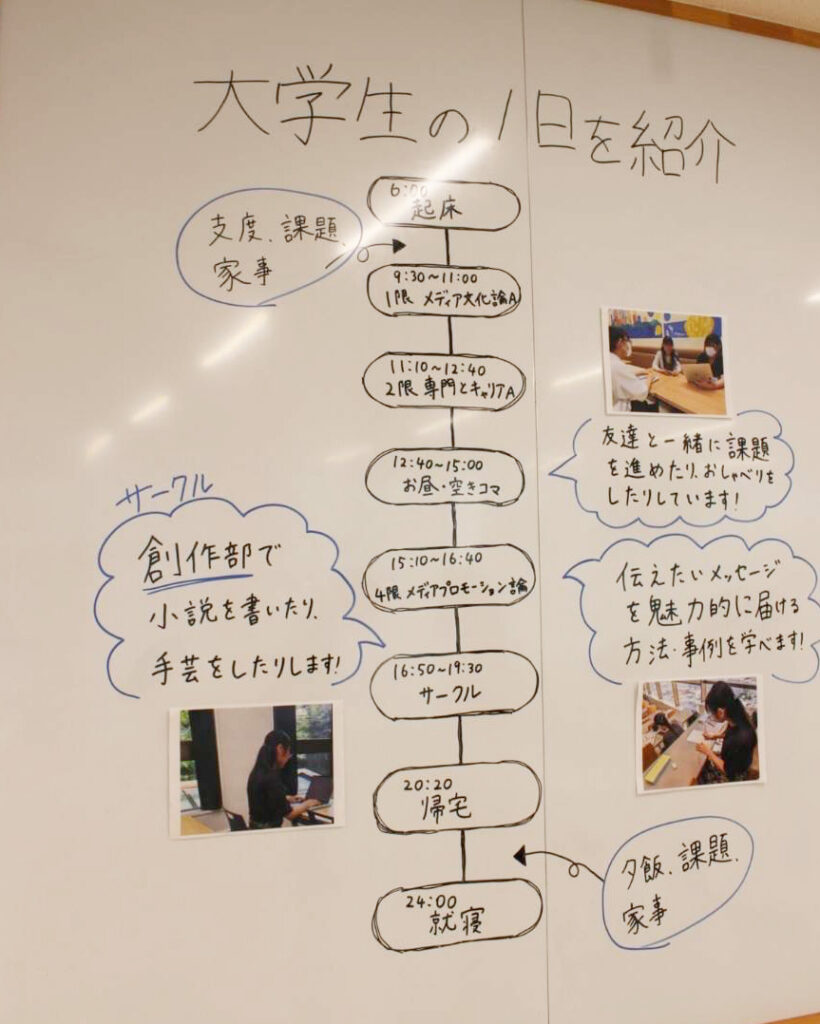 大学生の1日を紹介
6:00
起床
支度、課題、
家事
9:30~11:00
1限 メディア文化論A
11:10~12:40
2限 専門とキャリアA
12:40~15:00
お昼・空きコマ
友達と一緒に課題
を進めたり、おしゃべりを
したりしています!
15:10~16:40
4限 メディアプロモーション論
伝えたいメッセージ
を魅力的に届ける
方法・事例を学べます!
16:50~19:30
サークル
サークル
創作部で
小説を書いたり、
手芸をしたりします!
20:20
帰宅
夕飯、課題、
家事
24:00
就寝